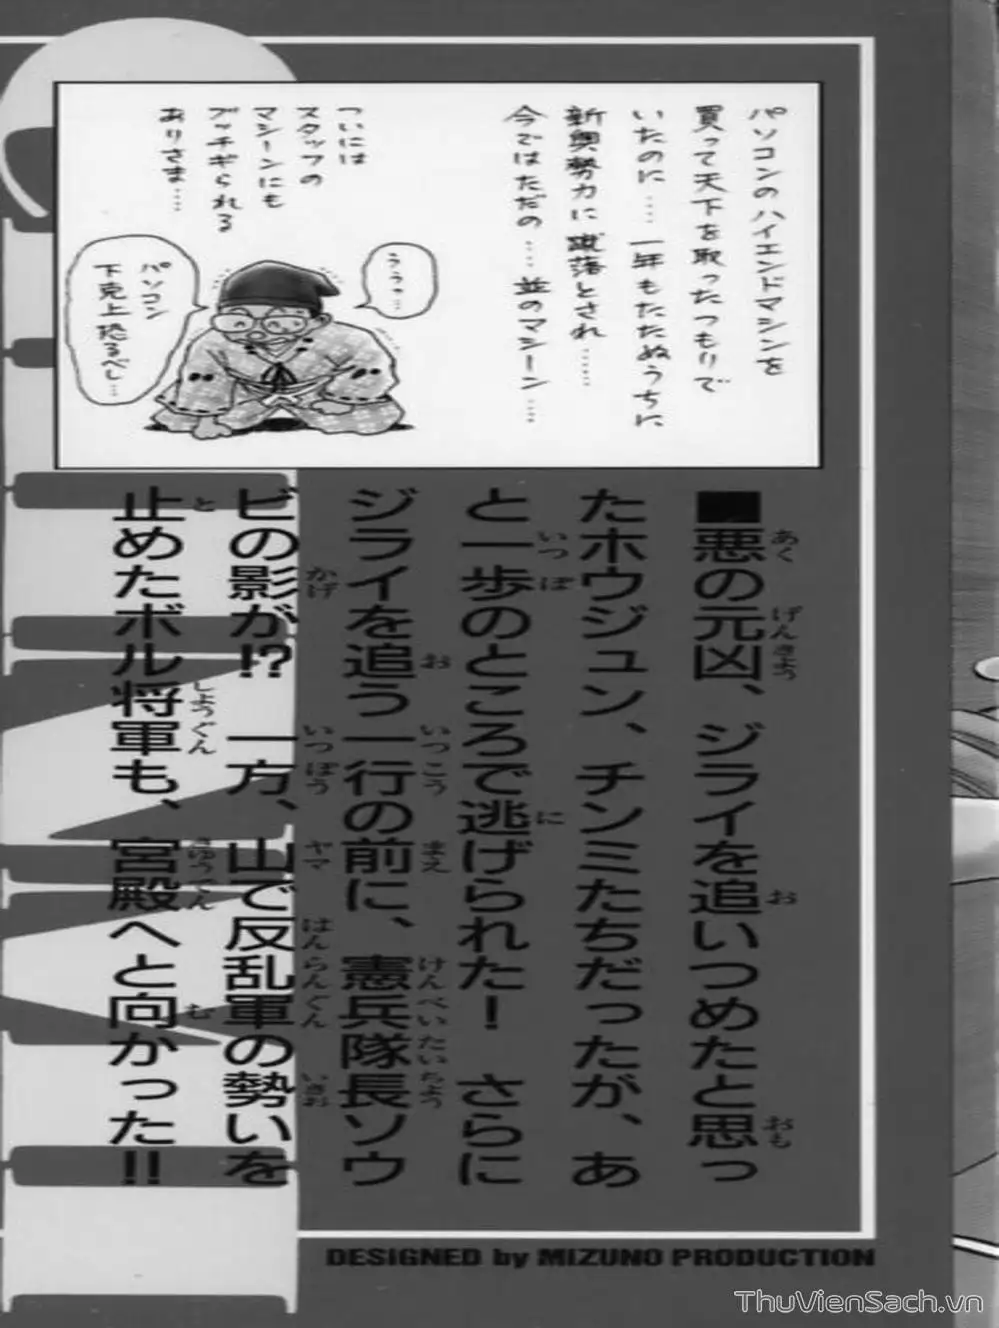 パソコンのハイエンドマシンを
買って天下を取ったつもりで
いたのに…… 一年もたたぬうちに
新興勢力に蹴落とされ……
今ではただの…… 並のマシーン……
ついには
スタッフの
マシーンにも
ブッチギられる
ありさま……
ううっ…
パソコン
下克上恐るべし…
■悪の元凶、ジライを追いつめたと思っ
たホウジュン、チンミたちだったが、あ
と一歩のところで逃げられた! さらに
ジライを追う一行の前に、憲兵隊長ソウ
ビの影が!? 一方、山で反乱軍の勢いを
止めたボル将軍も、宮殿へと向かった!!
DESIGNED by MIZUNO PRODUCTION
ThuVienSach.vn